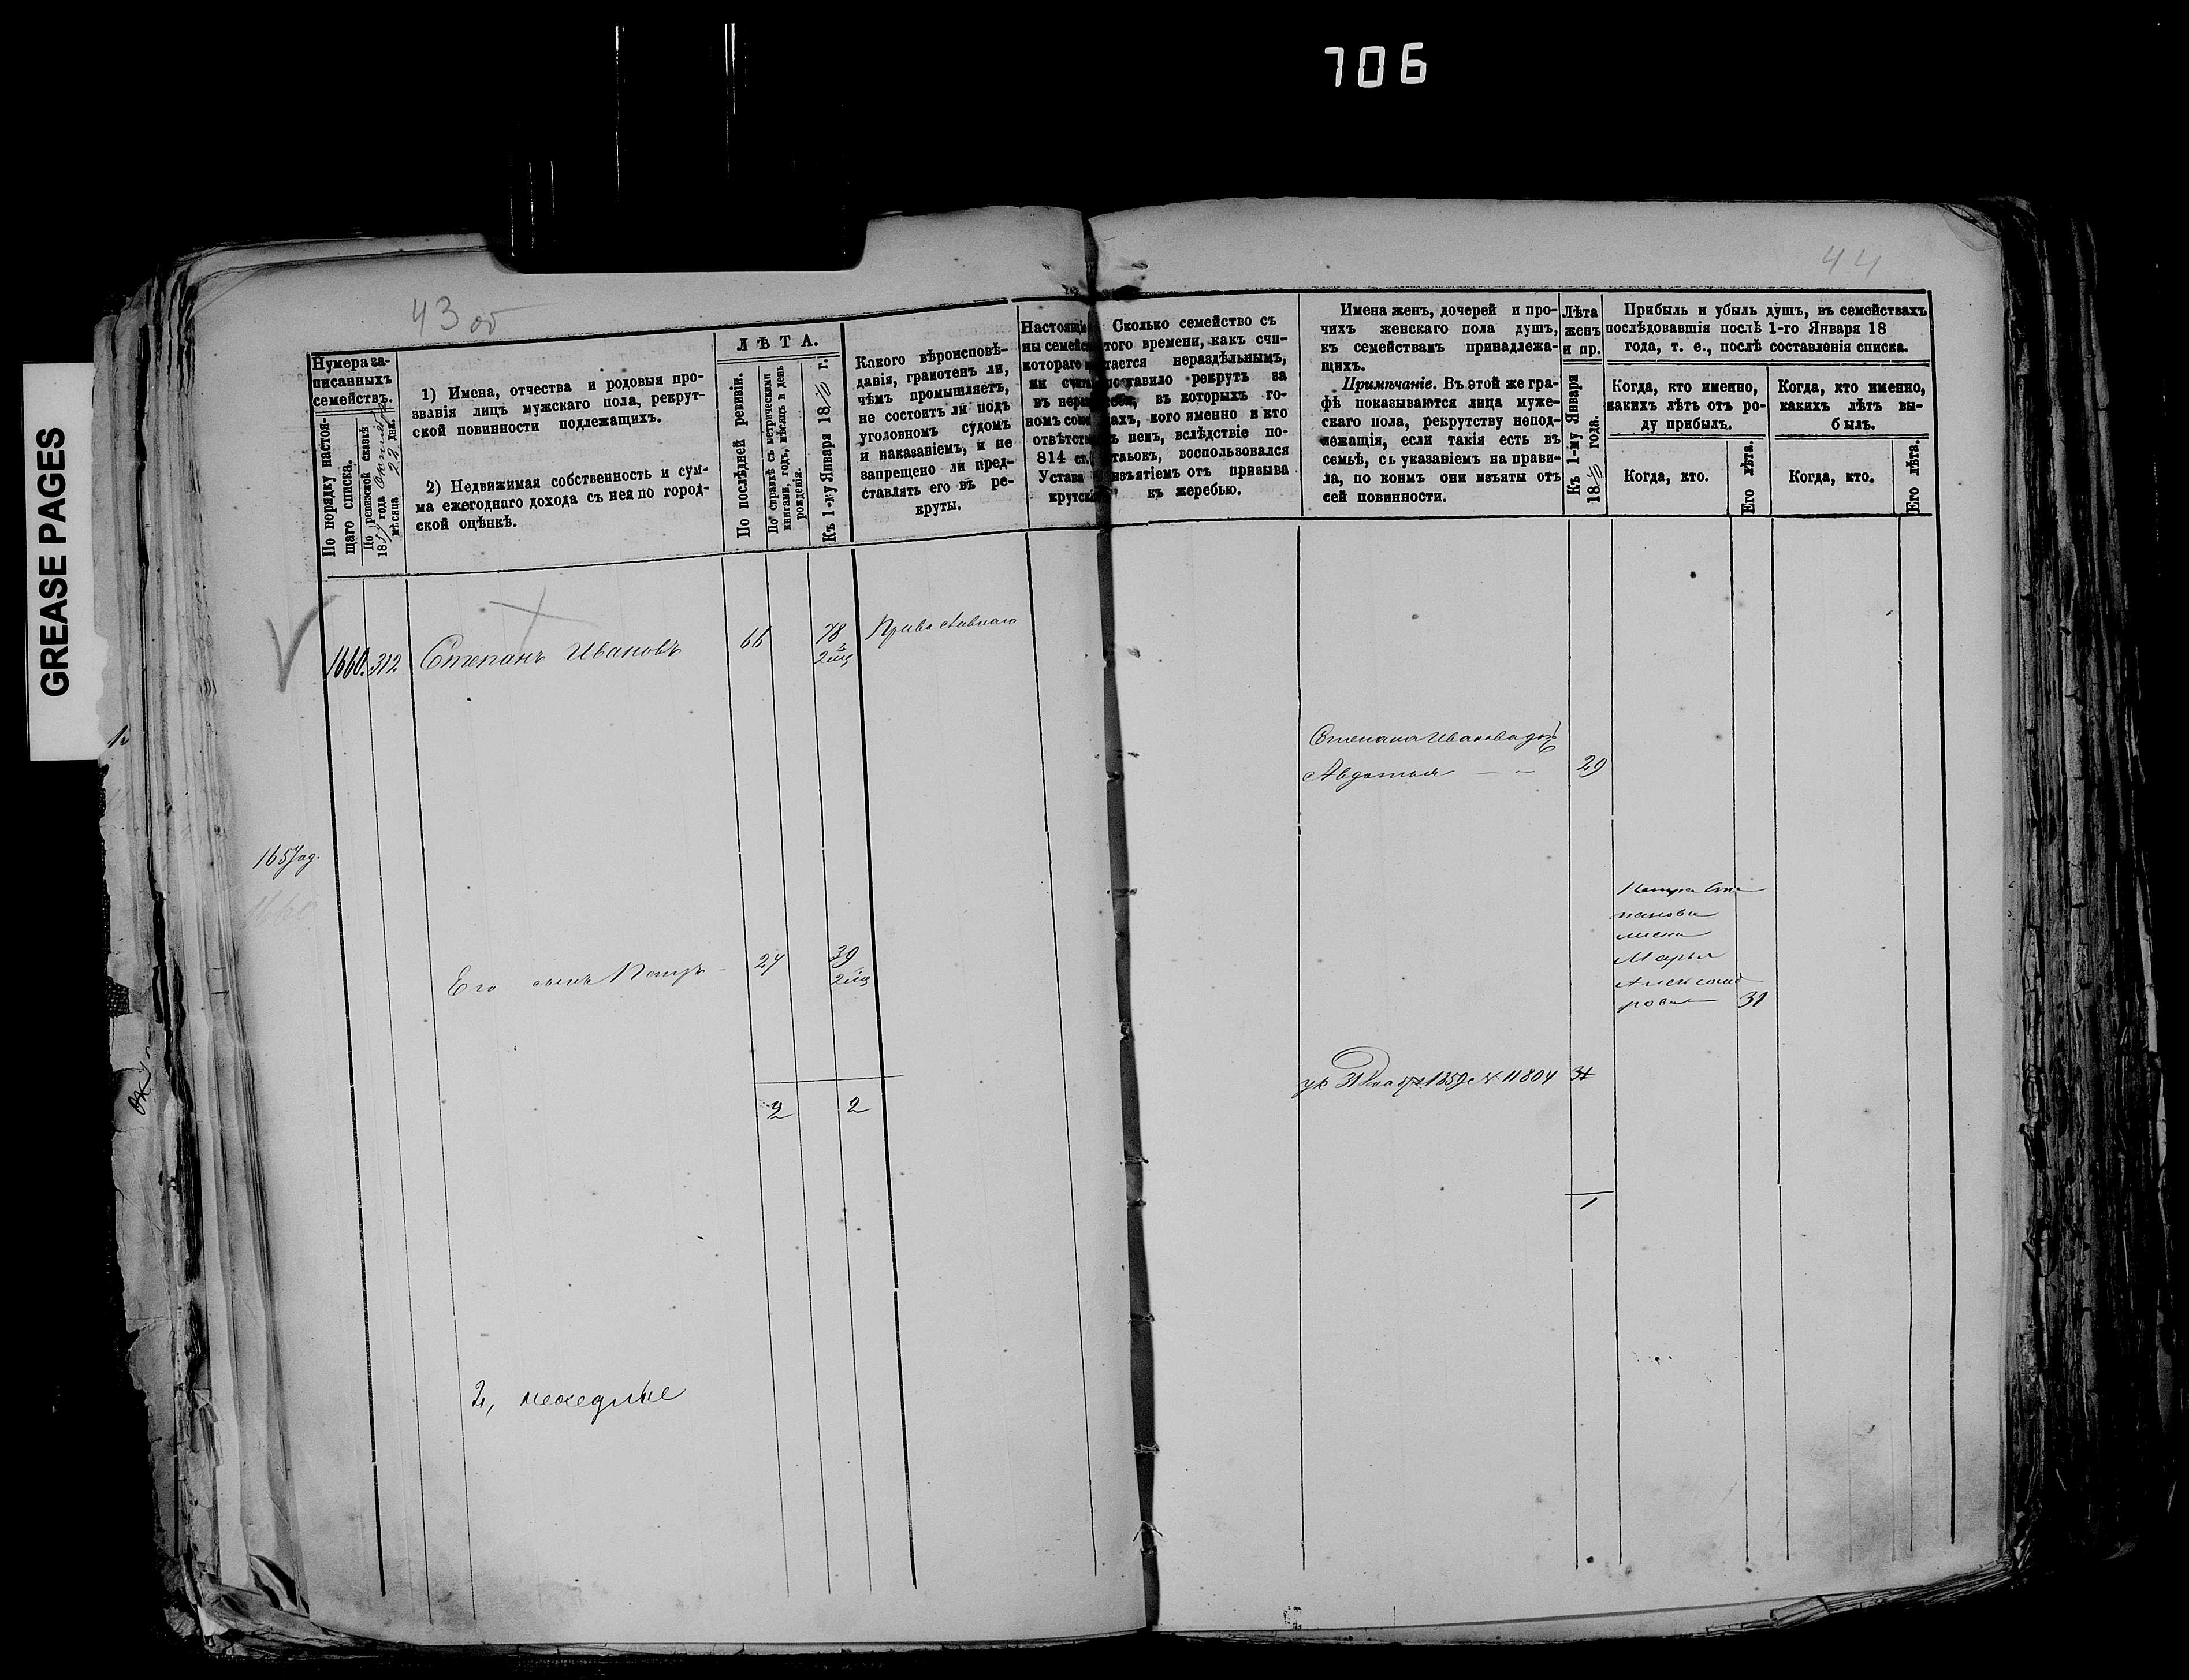 706
GREASE PAGES
43 об
44
Нумера за-
писанныхъ
семействъ.
По порядку настоя-
щаго списка.
По ревизской сказкѣ
185 года
мѣсяца 22 дня.
1) Имена, отчества и родовыя про-
званія лицъ мужскаго пола, рекрут-
ской повинности подлежащихъ.
2) Недвижимая собственность и сум-
ма ежегоднаго дохода съ нея по город-
ской оцѣнкѣ.
ЛѢТА.
По послѣдней ревизіи.
По справкѣ съ метрическими
книгами, годъ, мѣсяцъ и день
рожденія.
Къ 1-му Января 18 г.
Какого вѣроисповѣ-
данія, грамотенъ ли,
чѣмъ промышляетъ,
не состоитъ ли подъ
уголовномъ судомъ
и наказаніемъ, и не
запрещено ли пред-
ставлять его въ ре-
круты.
Настоящі
ны семейс
котораго
ни счита
въ нера
номъ сов
отвѣтст
814 ст.
Устава
крутск
Сколько семейство съ
того времени, какъ счи-
тается нераздѣльнымъ,
поставило рекрутъ за
себя, въ которыхъ го-
дахъ, кого именно и кто
въ немъ, вслѣдствіе по-
статьокъ, воспользовался
изъятіемъ отъ призыва
къ жеребью.
Имена женъ, дочерей и про-
чихъ женскаго пола душъ,
къ семействамъ принадлежа-
щихъ.
Примѣчаніе. Въ этой же гра-
фѣ показываются лица муже-
скаго пола, рекрутству непод-
лежащія, если такія есть въ
семьѣ, съ указаніемъ на прави-
ла, по коимъ они изъяты отъ
сей повинности.
Лѣта
женъ
и пр.
Къ 1-му Января
18 года.
Прибыль и убыль душъ, въ семействахъ
послѣдовавшія послѣ 1-го Января 18
года, т. е., послѣ составленія списка.
Когда, кто именно,
какихъ лѣтъ отъ ро-
ду прибылъ.
Когда, кто.
Его лѣта.
Когда, кто именно,
какихъ лѣтъ вы-
былъ.
Когда, кто.
Его лѣта.
1660. 312 Степанъ Ивановъ 66 78
Православнаго
Степана Иванова дочь
Авдотья — — 29
1657
1660
Его сынъ Петръ - 27 39
Петра Сте
панова
жена
Марья
Александ
рова 31
ук 31 1859 № 11804 31
2 2
1
2,